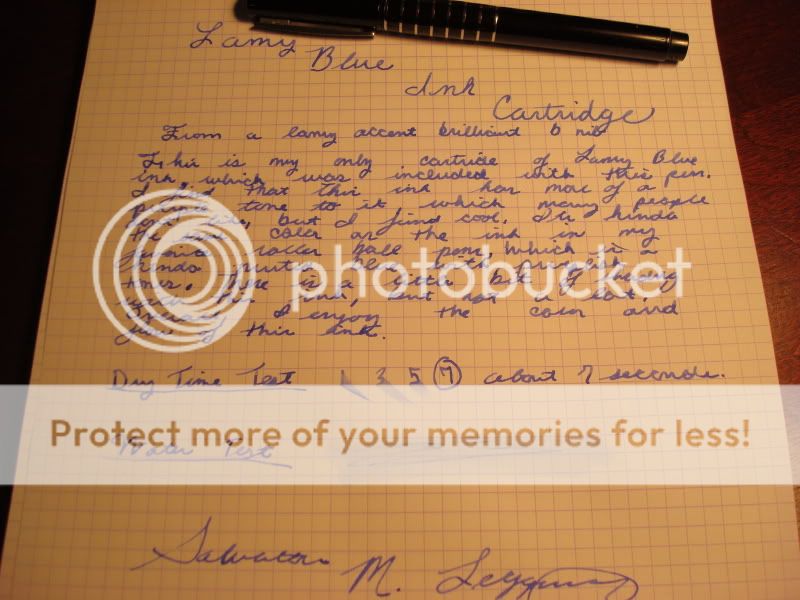 Lamy
Blue
Ink
Cartridge
From a lamy accent brilliant b nib
This is my only cartride of Lamy Blue
ink which was included with this pen.
I find that this ink has more of a
purple tone to it which many people
don't like, but I find cool. It is kinda
the same color as the ink in my
favorite roller ball pen, which is a
kinda purple blue with purplish
tones. There is a little bit of
with this ink, but not a lot.
I enjoy the color and
flow of this ink.
photobucket
Dry Time Test 1 3 5 7 about 7 seconds.
Protect more of your memories for less!
Water Test
Salvatore M.